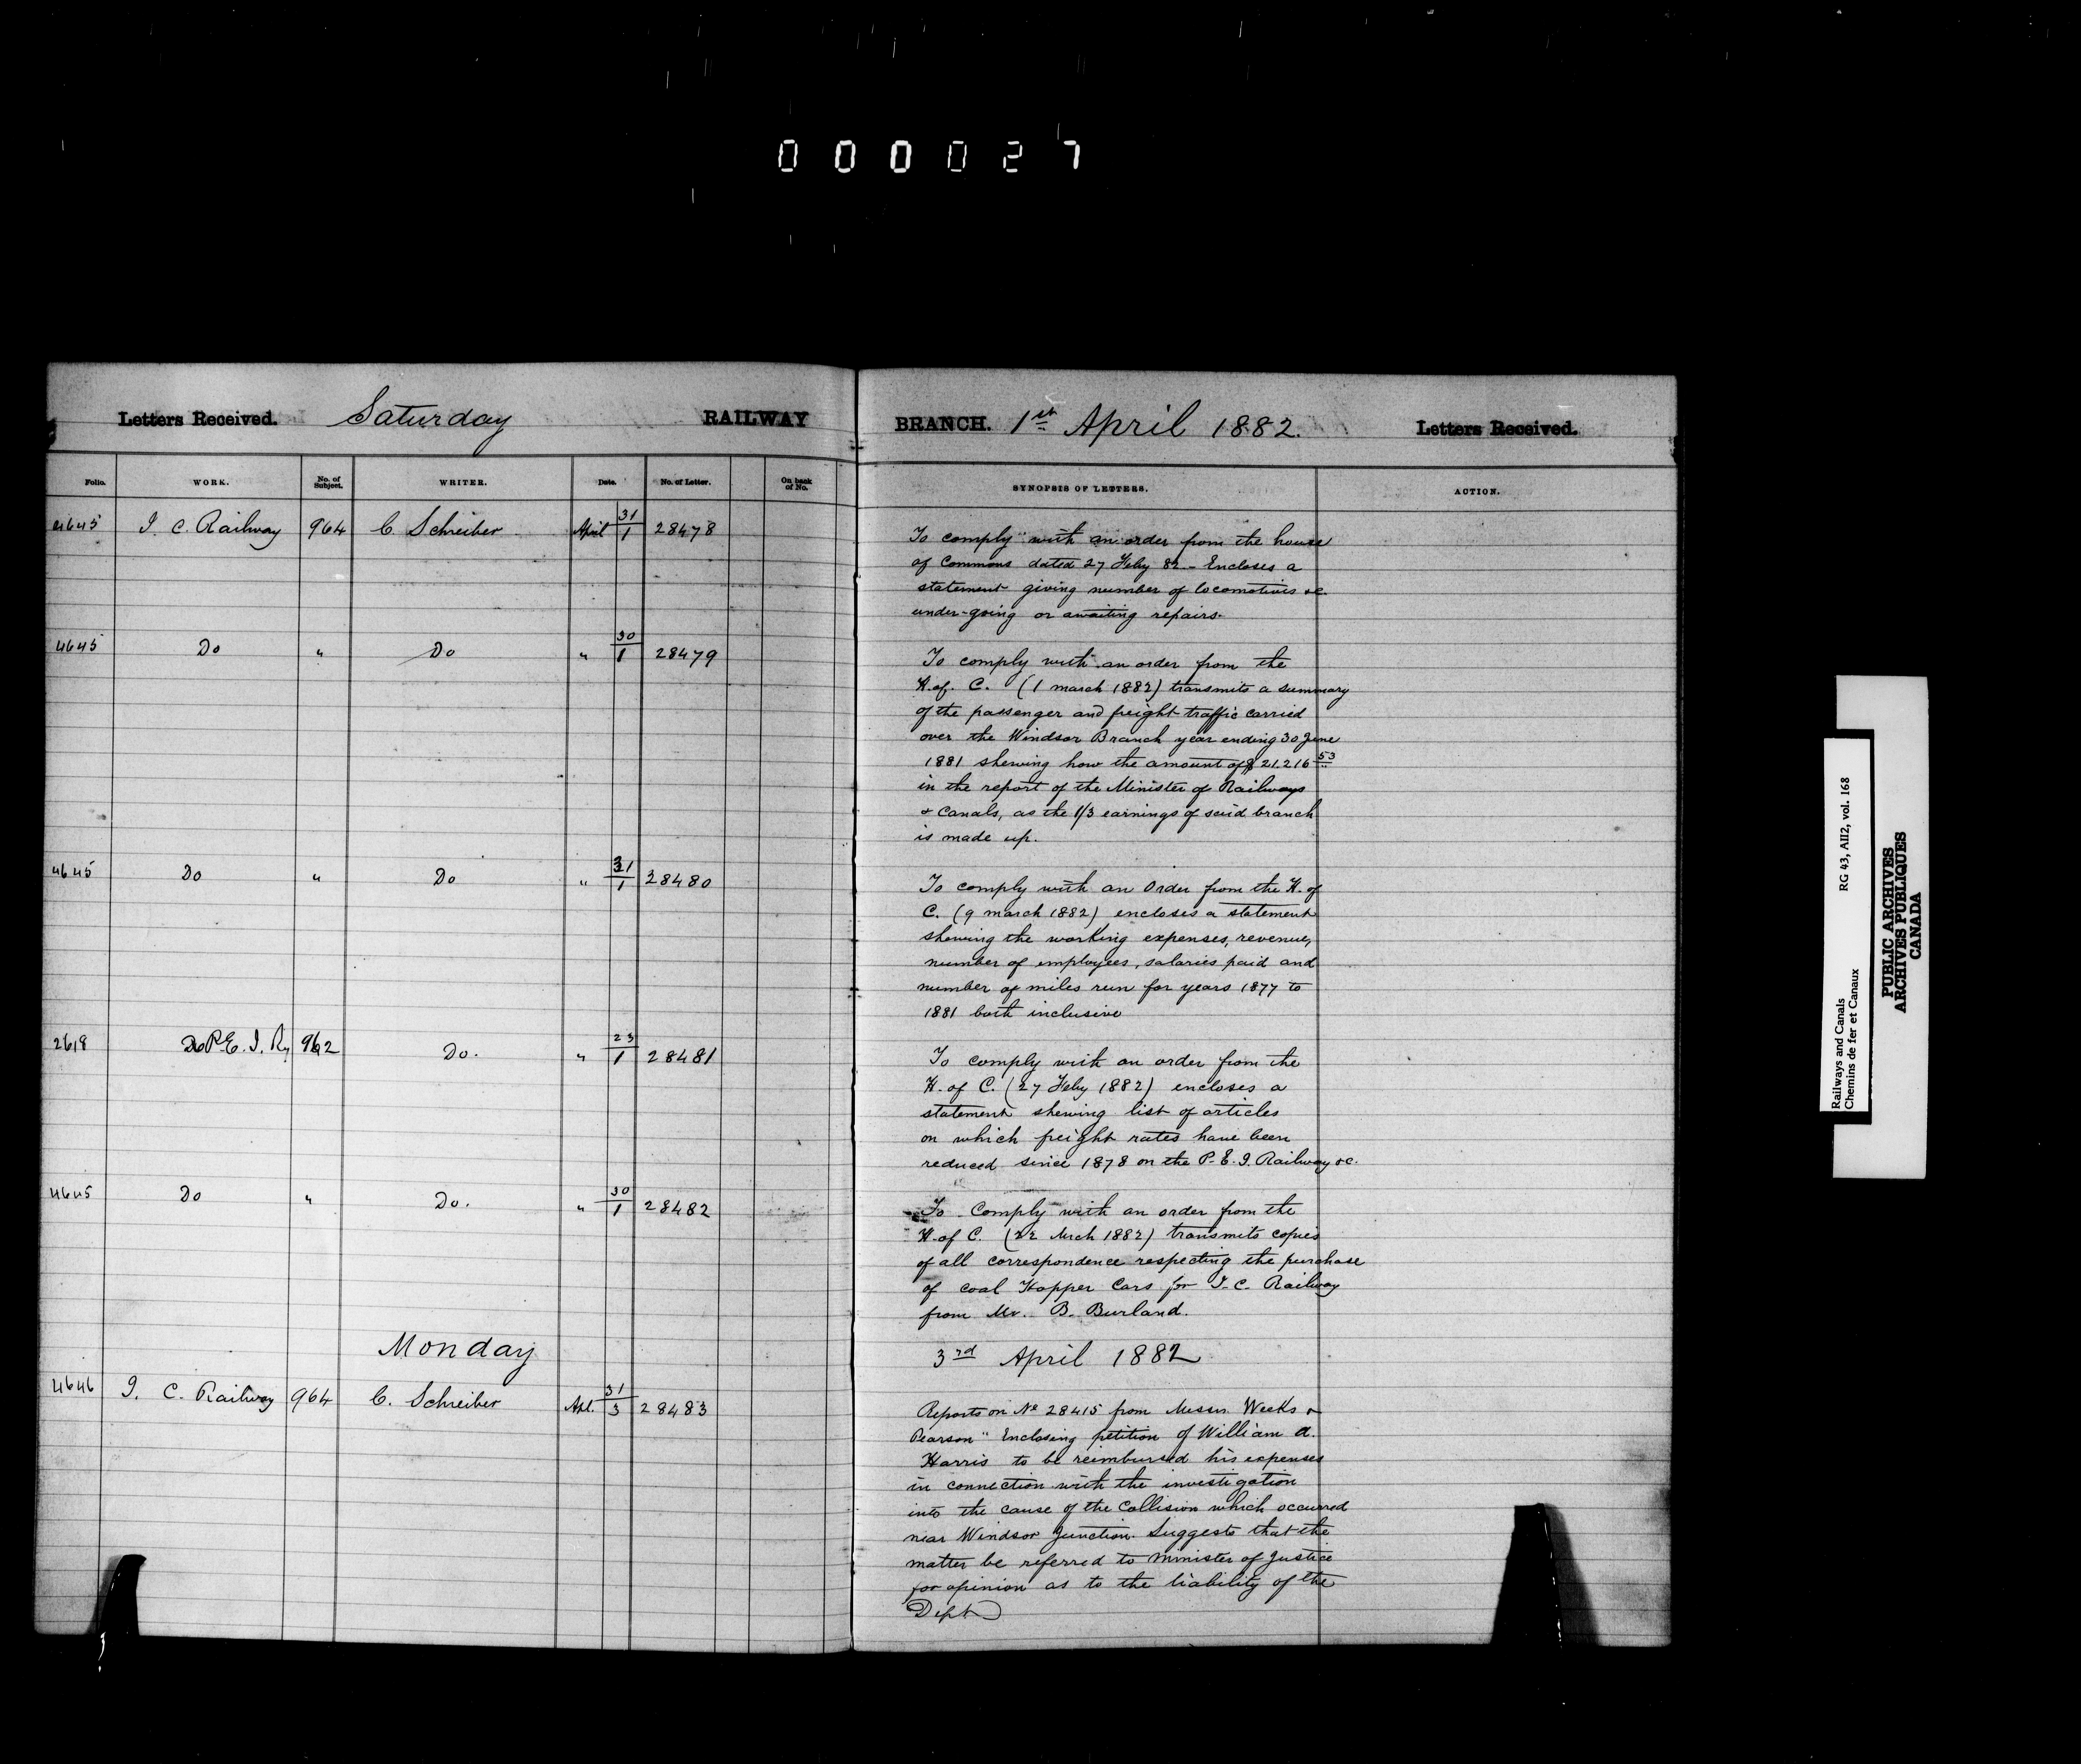 000027
Letters Received. Saturday RAILWAY BRANCH. 1st April 1882. Letters Received.
Folio. WORK. No. of Subject. WRITER. Date. No. of Letter. On back of No. SYNOPSIS OF LETTERS. ACTION.
4645 I. C. Railway 964 C. Schreiber April 31/1 28478
To comply with an order from the house
of Commons dated 27 Feby 82 - Encloses a
statement giving number of locomotives &c.
under-going or awaiting repairs.
4645 Do " Do " 30/1 28479
To comply with an order from the
H. of. C. (1 march 1882) transmits a summary
of the passenger and freight traffic carried
over the Windsor Branch year ending 30 June
1881 shewing how the amount of $21.216 53
in the report of the Minister of Railways
& Canals, as the 1/3 earnings of said branch
is made up.
4645 Do " Do " 31/1 28480
To comply with an Order from the H. of
C. (9 march 1882) encloses a statement
shewing the working expenses, revenue,
number of employees, salaries paid and
number of miles run for years 1877 to
1881 both inclusive
2618 Do P. E. I. Ry 962 Do. " 23/1 28481
To comply with an order from the
H. of C. (27 Feby 1882) encloses a
statement shewing list of articles
on which freight rates have been
reduced since 1878 on the P. E. I. Railway &c.
4645 Do " Do. " 30/1 28482
To Comply with an order from the
H. of C. (22 Mrch 1882) transmits copies
of all correspondence respecting the purchase
of coal Hopper Cars for I. C. Railway
from Mr. B. Burland.
Monday 3rd April 1882
4646 I. C. Railway 964 C. Schreiber Apl. 31/3 28483
Reports on No 28415 from Messrs. Weeks &
Pearson" Enclosing petition of William A.
Harris to be reimbursed his expenses
in connection with the investigation
into the cause of the Collision which occurred
near Windsor Junction. Suggests that the
matter be referred to Minister of Justice
for opinion as to the liability of the
Dept
Railways and Canals RG 43, AII2, vol. 168
Chemins de fer et Canaux
PUBLIC ARCHIVES
ARCHIVES PUBLIQUES
CANADA